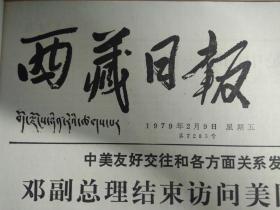 西藏日报
བོད་ལྗོངས་ཉིན་རེའི་ཚགས་པར
1979年2月9日 星期五
中美友好交往和各方面关系发
邓副总理结束访问美